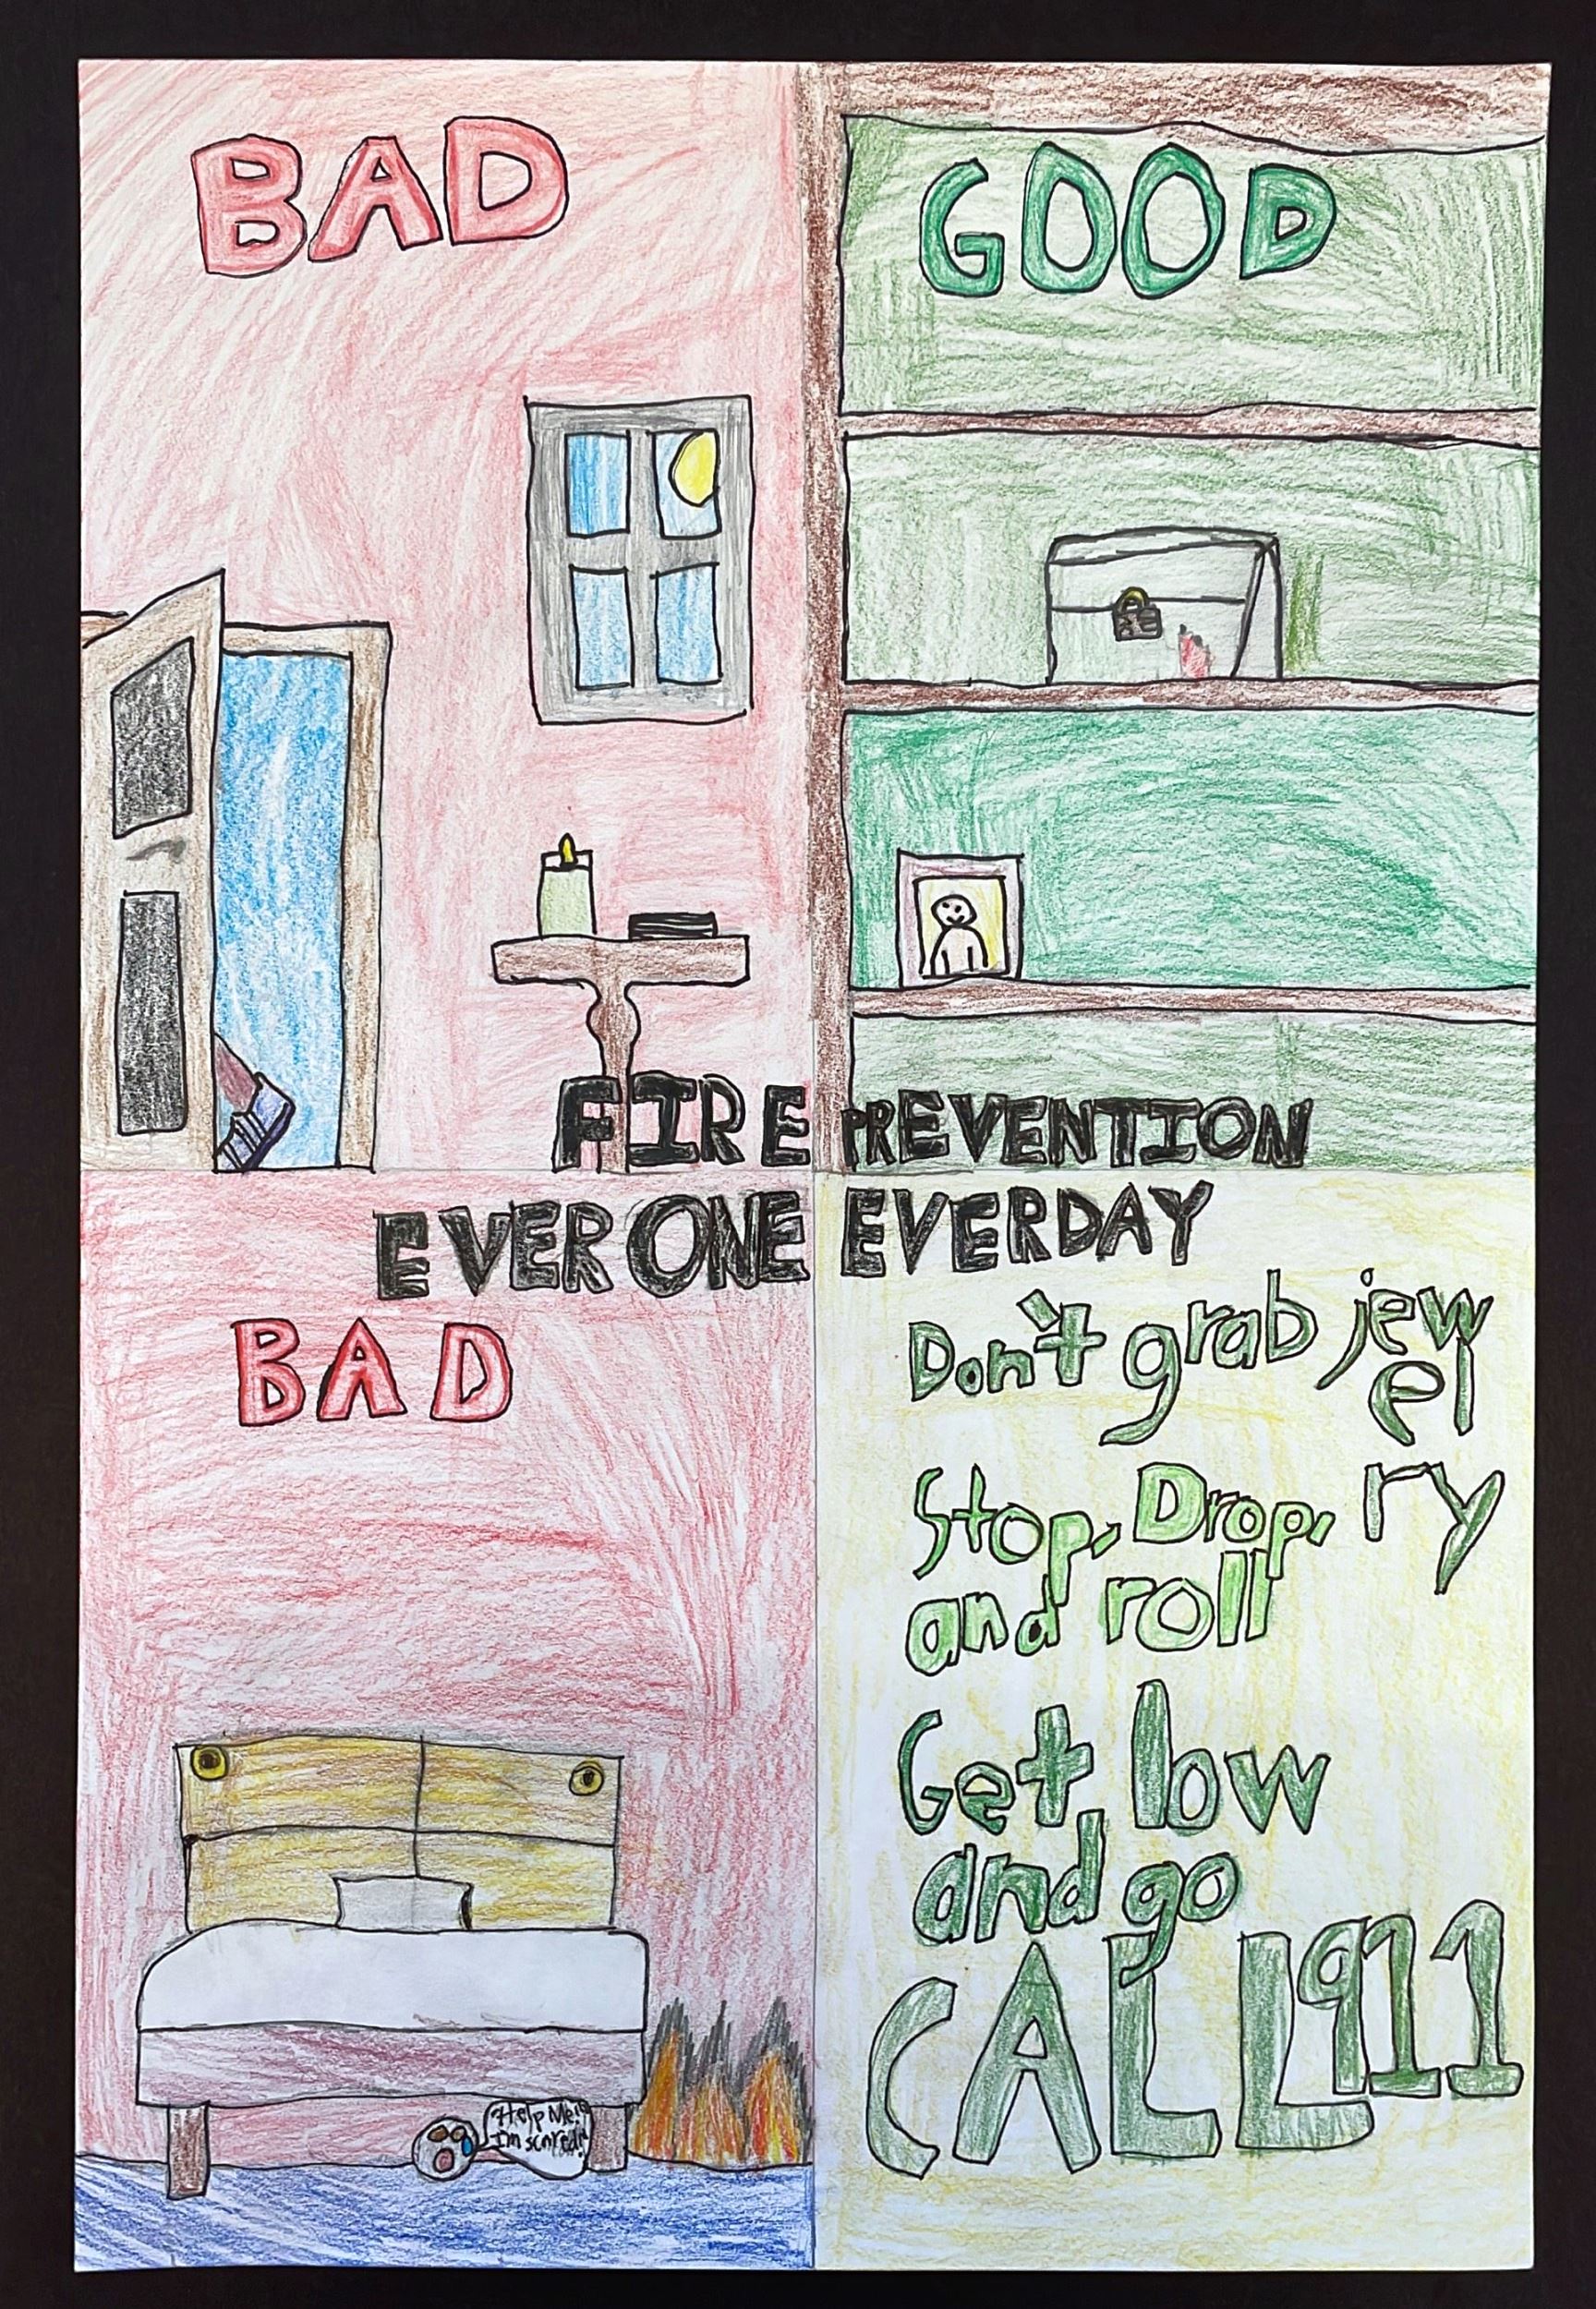 BAD
GOOD
FIRE PREVENTION
EVERONE EVERDAY
BAD
Help Me!
I'm scared!
Don't grab jew
el
ry
Stop, Drop,
and roll
Get low
and go
CALL 911